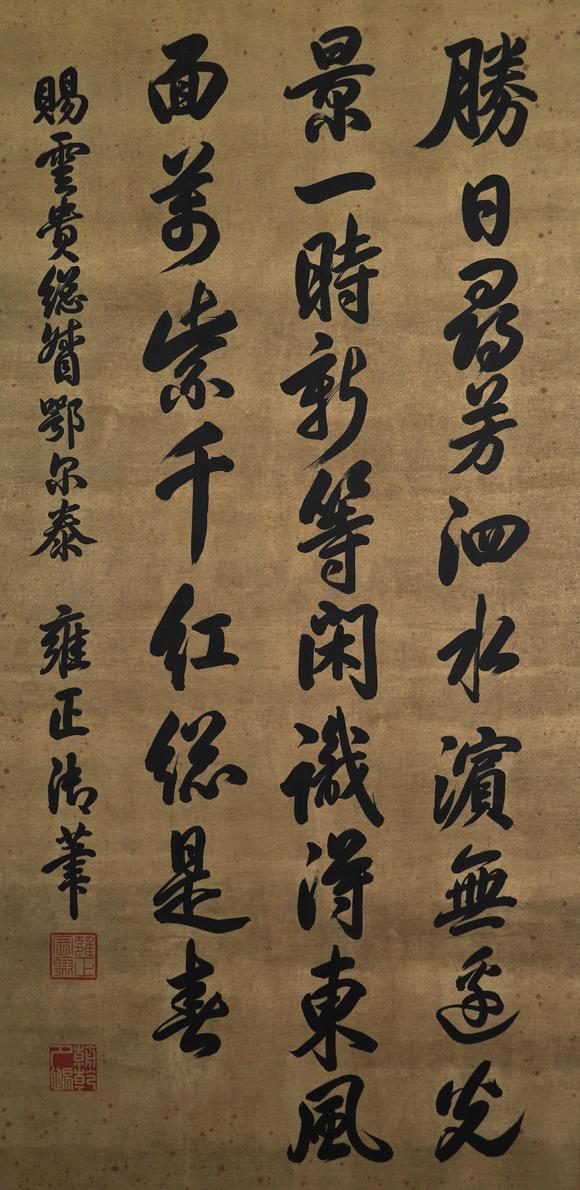 勝日尋芳泗水濱無邊光
景一時新等閑識得東風
面萬紫千紅總是春
賜雲貴總督鄂尔泰 雍正御筆
雍正宸翰
朝乾夕惕